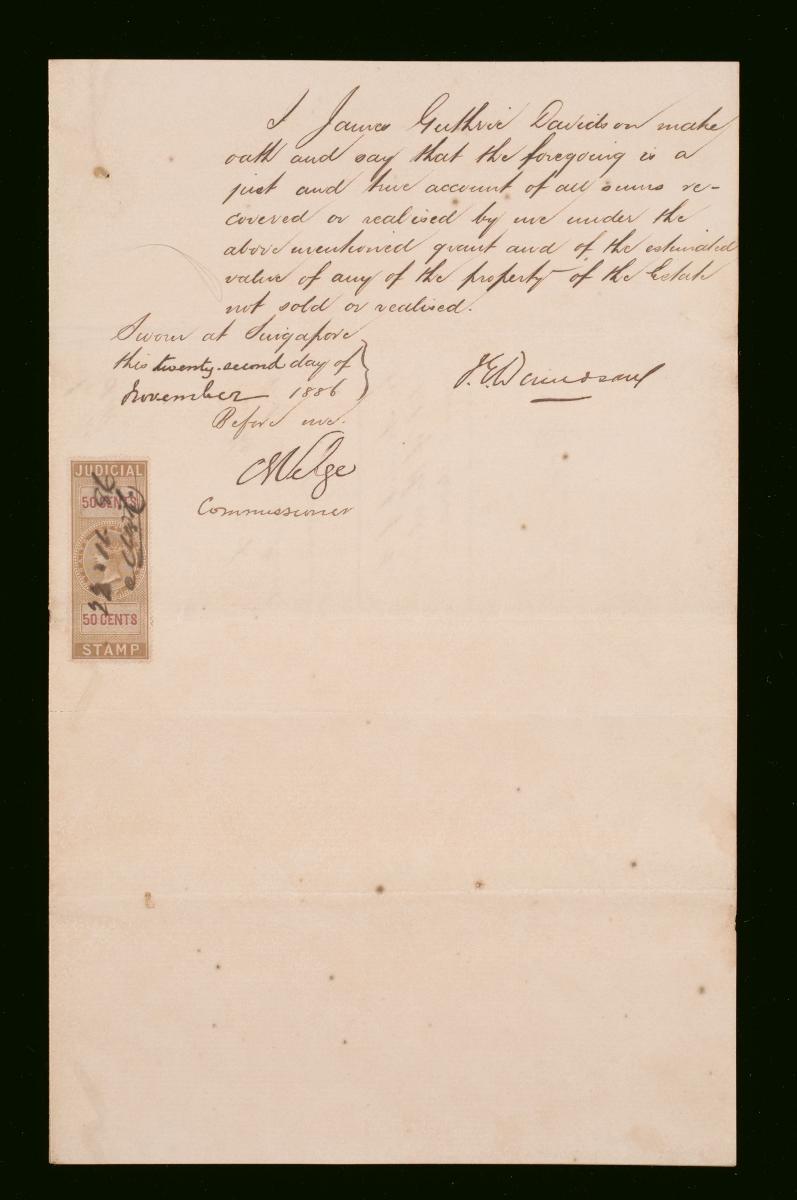 I James Guthrie Davidson make
oath and say that the foregoing is a
just and true account of all sums re-
covered or realised by me under the
above mentioned grant and of the estimated
value of any of the property of the Estate
not sold or realised.
Sworn at Singapore
this twenty-second day of
November 1886
J. G. Davidson
Before me.
Commissioner
JUDICIAL
50 CENTS
22 11 86
50 CENTS
STAMP